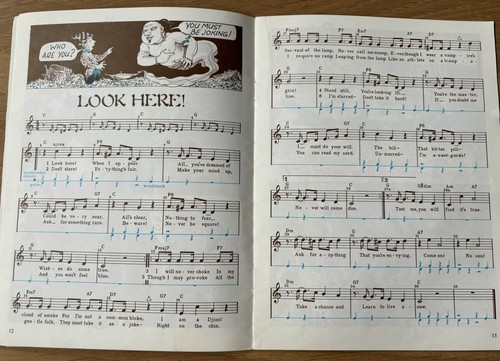 WHO
ARE YOU?
YOU MUST
BE JOKING!
LOOK HERE!
C G C G
C G C G
1 Look here! When I ap - pear All... you've dreamed of
2 Don't stare! Ev - 'ry - thing's fair. Make your mind up,
C G C G
Could be ve - ry near. All's clear, No - thing to fear...
Ask... for something rare. Be - ware! Never be square!
Wish - es do come true. 3 I will ne - ver choke In my
And you won't feel blue. 5 Though I may pro - voke All the
cloud of smoke For I'm not a com - mon bloke, I am a Djinn!
gen - tle folk, They must take it as a joke - Right on the chin.
12
Ser - vant of the lamp, Ne - ver call me scamp, E - ven though I wear a vam - pire's
I re - quire no ramp Leap - ing from the lamp Like an ath - lete on a tramp - o -
grin! 4 Stand still, You're looking ill... You're the mas - ter,
line. 6 I'm starred - Don't take it hard! If... you doubt me
I... must do your will. The bill - That bit - ter pill -
You can read my card. Un - marred - I'm a - vant - garde!
Ne - ver will come due. Test me, you will find it's true.
Ask for a - ny - thing That you're en - vy - ing. Come on! No con!
Take a chance and Learn to live a - new.
13